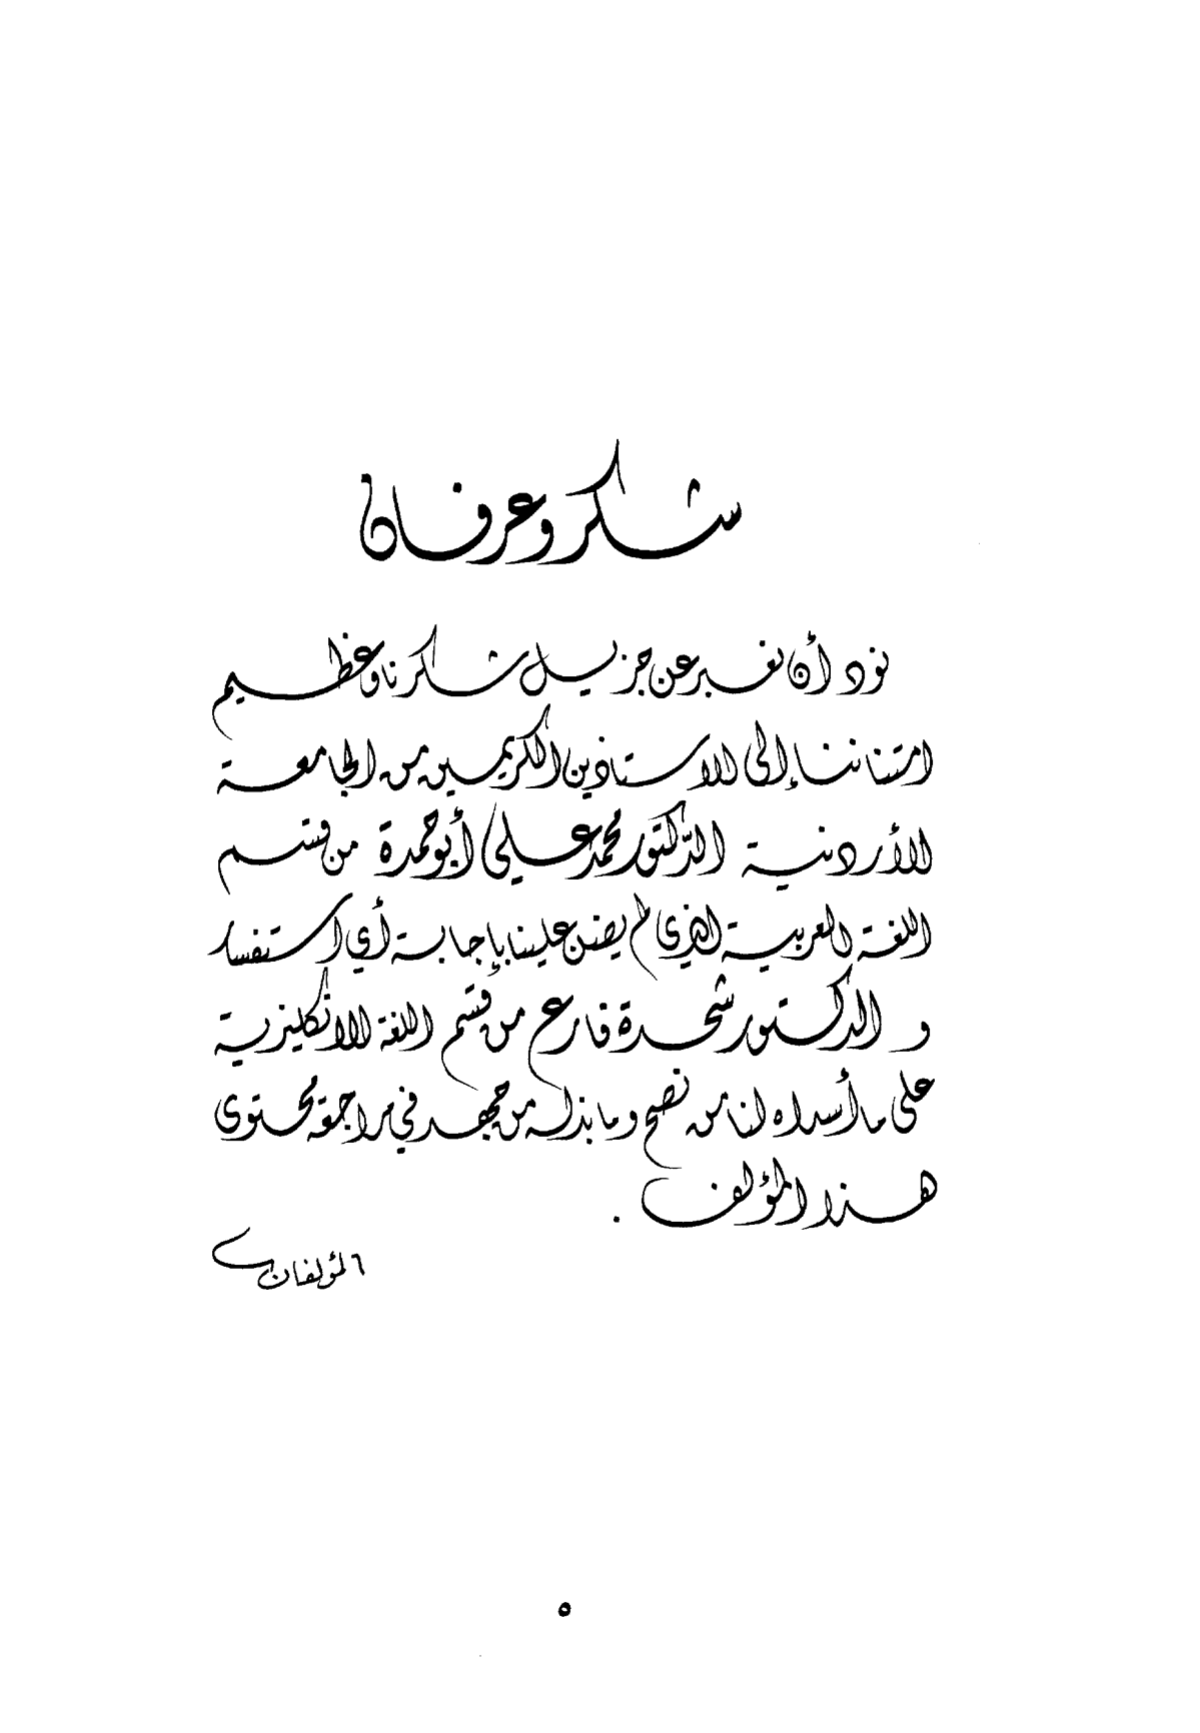 شكر وعرفان
نود أن نعبر عن جزيل شكرنا وعظيم
امتناننا إلى الاستاذين الكريمين من الجامعة
الأردنية الدكتور محمد علي أبو حمدة من قسم
اللغة العربية الذي لم يضن علينا بإجابة أي استفسار
و الدكتور شحدة فارع من قسم اللغة الانكليزية
على ما أسداه لنا من نصح وما بذله من جهد في مراجعة محتوى
هذا المؤلف .
المؤلفان
٥